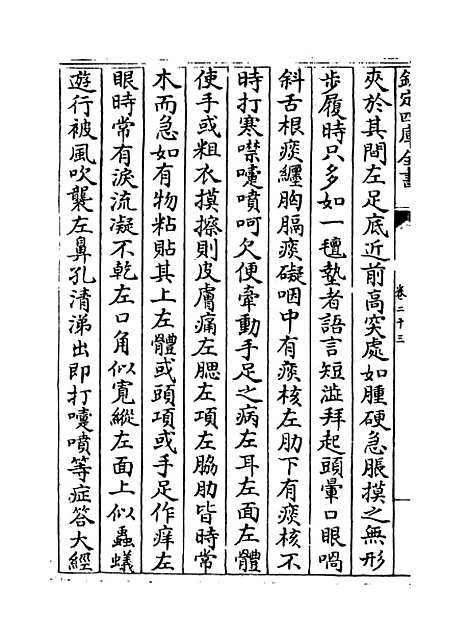 欽定四庫全書
卷二十三
夾於其間左足底近前高突處如腫硬急脹摸之無形
步履時只多如一氊墊者語言短澁拜起頭暈口眼喎
斜舌根痰纏胸膈痰礙咽中有痰核左肋下有痰核不
時打寒噤嚏噴呵欠便牽動手足之病左耳左面左體
使手或粗衣摸擦則皮膚痛左腮左項左脇肋皆時常
木而急如有物粘貼其上左體或頭項或手足作痒左
眼時常有淚流凝不乾左口角似寛縱左面上似蟲蟻
遊行被風吹襲左鼻孔清涕出即打嚏噴等症答大經